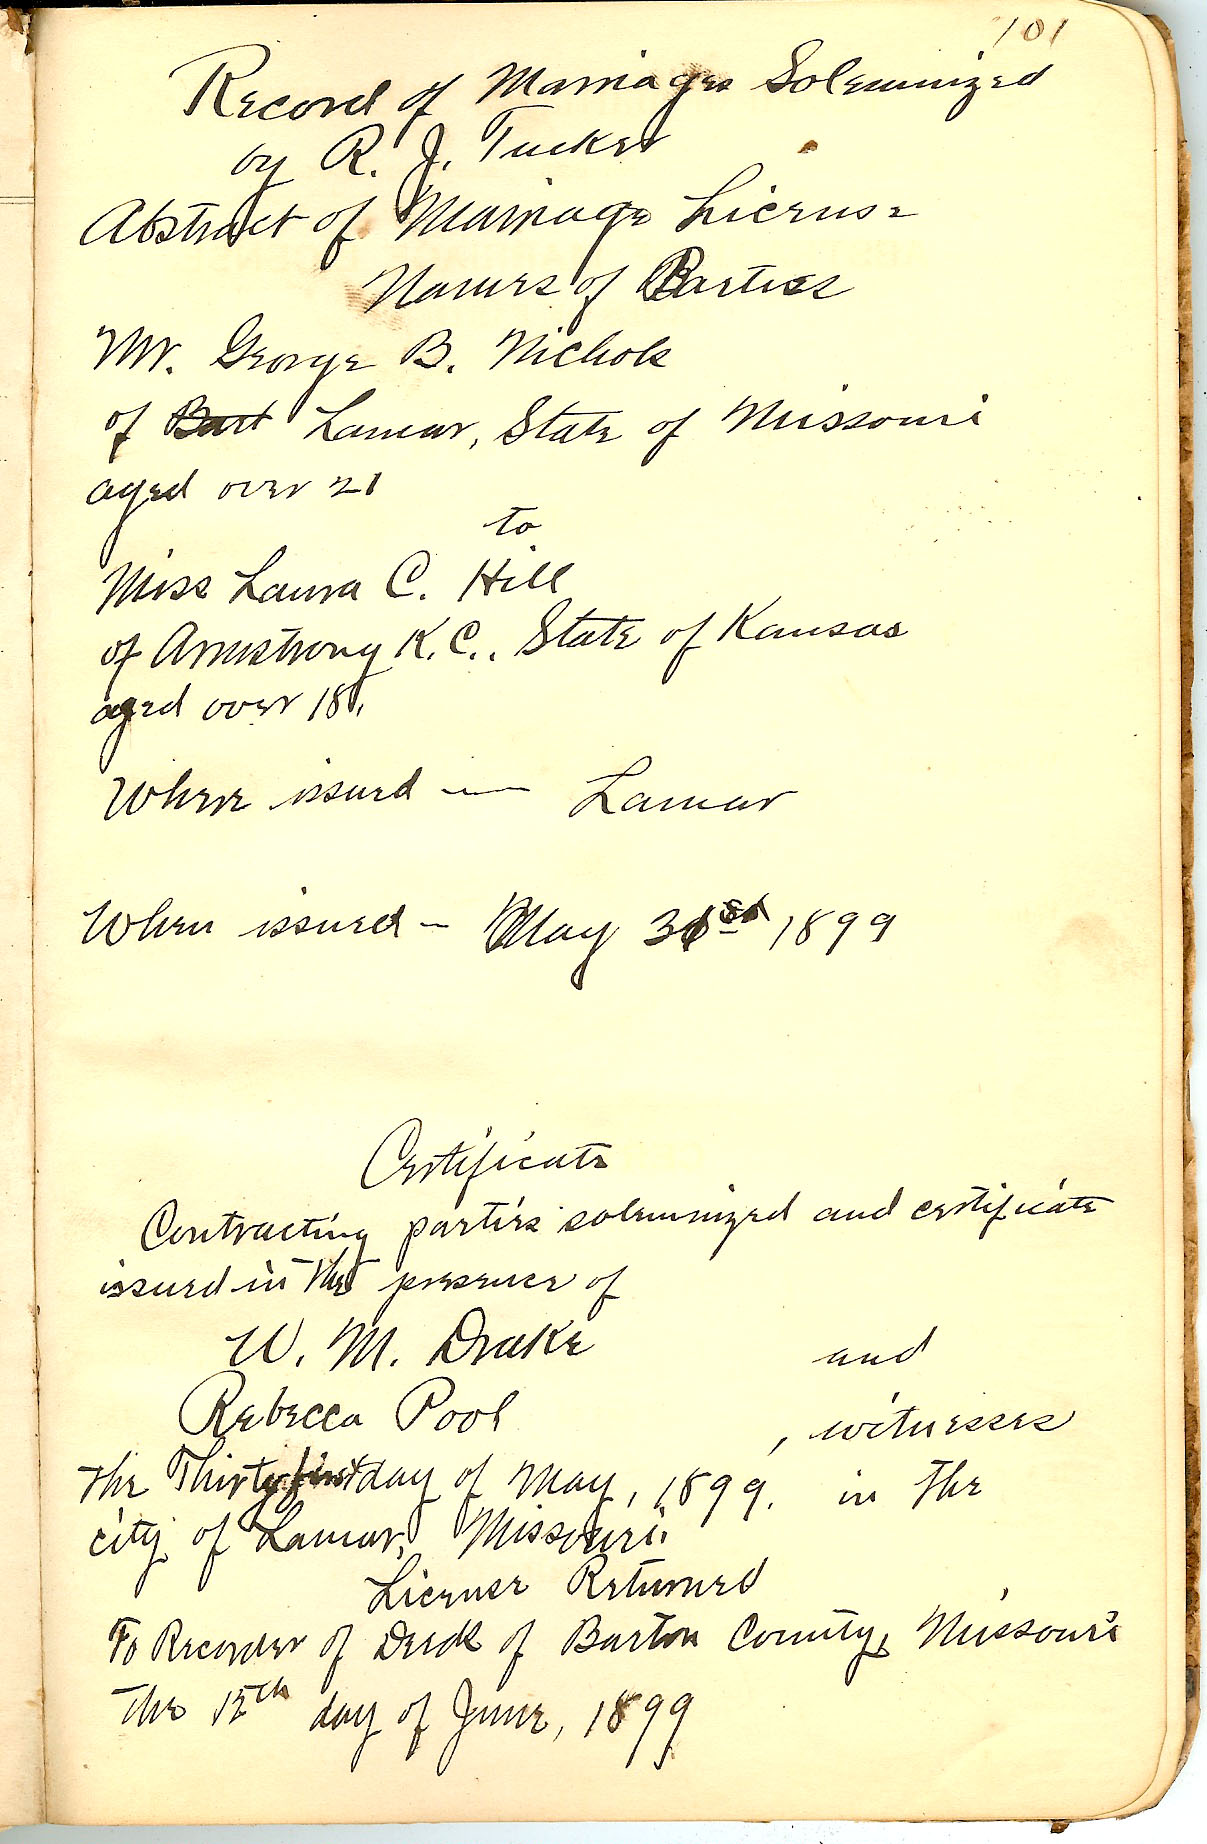 101
Record of Marriages Solemnized
by R. J. Tucker
Abstract of Marriage License
Names of Parties
Mr. George B. Nichols
of Bart Lamar, State of Missouri
aged over 21
to
Miss Laura C. Hill
of Armstrong K.C., State of Kansas
aged over 18.
Where issued — Lamar
When issued – May 31st 1899
Certificate
Contracting parties solemnized and certificate
issued in the presence of
W. M. Drake and
Rebecca Pool , witnesses
the Thirty first day of May, 1899. in the
city of Lamar, Missouri.
License Returned
To Recorder of Deeds of Barton County, Missouri
the 15th day of June, 1899